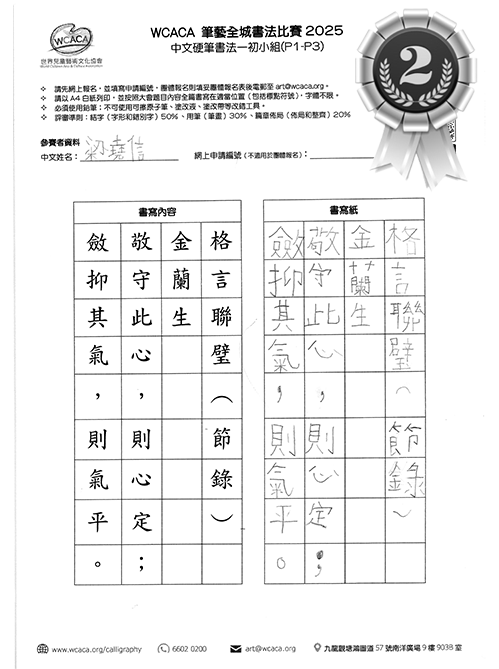 WCACA
世界兒童藝術文化協會
World Children Arts & Culture Association
WCACA 筆藝全城書法比賽 2025
中文硬筆書法—初小組(P1-P3)
2
請先網上報名，並填寫申請編號。團體報名則請妥團體報名表後電郵至 art@wcaca.org。
請以 A4 白紙列印，並按照大會題目內容全篇書寫在適當位置 (包括標點符號)，字體不限。
必須使用鉛筆；不可使用可擦原子筆、塗改液、塗改帶等改錯工具。
評審準則：結字 (字形和錯別字) 50%、用筆 (筆畫) 30%、篇章佈局 (佈局和整齊) 20%
參賽者資料
中文姓名： 梁堯信 網上申請編號 (不適用於團體報名)：
書寫內容
格言聯璧（節錄）
金蘭生
敬守此心，則心定；
斂抑其氣，則氣平。
書寫紙
格言聯璧（節錄）
金蘭生
敬守此心，則心定；
斂抑其氣，則氣平。
www.wcaca.org/calligraphy 6602 0200 art@wcaca.org 九龍觀塘鴻圖道 57 號南洋廣場 9 樓 903B 室